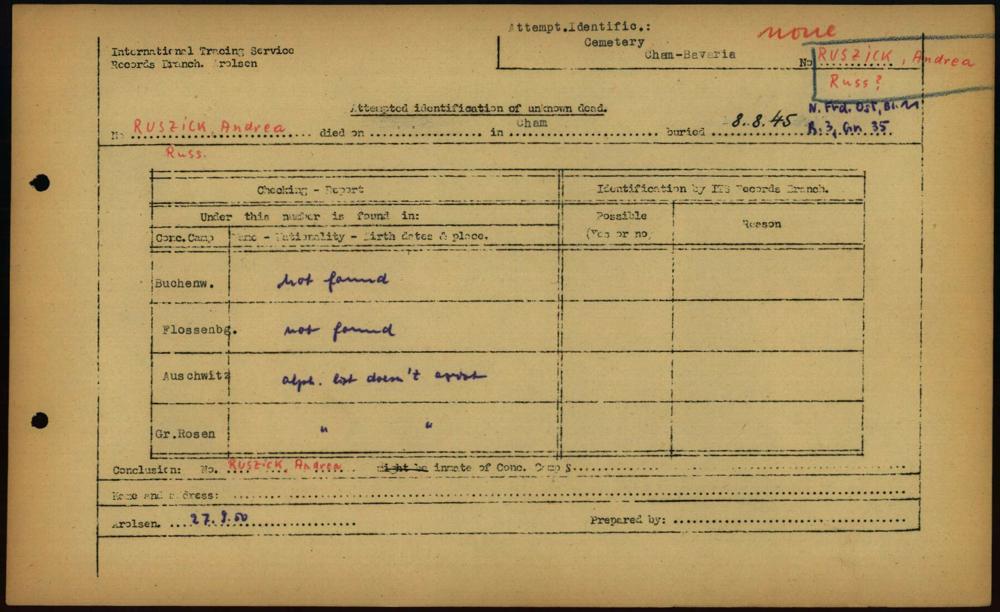 Attempt.Identific.:
Cemetery
Cham-Bavaria
none
International Tracing Service
Records Branch. Arolsen
No RUSZICK, Andrea
Russ?
N. Frd. Ost, Bl. 11
R. 3, Gr. 35
Attempted identification of unknown dead.
No RUSZICK, Andrea died on .......... in Cham .......... buried 8.8.45
Russ.
Checking - Report
Identification by ITS Records Branch.
Under this number is found in:
Possible
(Yes or no)
Reason
Conc.Camp
Name - Nationality - Birth dates & place.
Buchenw. not found
Flossenbg. not found
Auschwitz alph. list doesn't exist
Gr.Rosen " "
Conclusion: No. RUSZICK, Andrea might be inmate of Conc. Camp S..........
Name and address: ..........
Arolsen. 27.9.50 .......... Prepared by: ..........